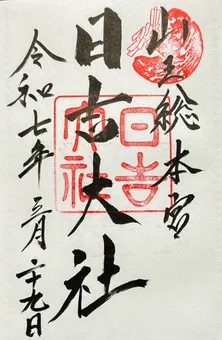 山王総本宮
日吉大社
令和七年三月二十九日
日吉大社